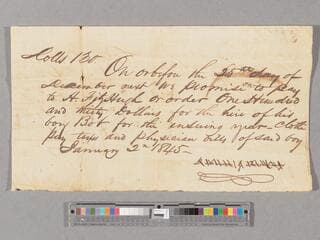 Dolls 130
On or before the 25th day of
December next We promise to pay
to H. Fitzhugh or order One Hundred
and thirty Dollars for the hire of his
boy Bob for the ensuing year - Cloth
pay taxes and physician bills of said boy
January 2nd 1845 -